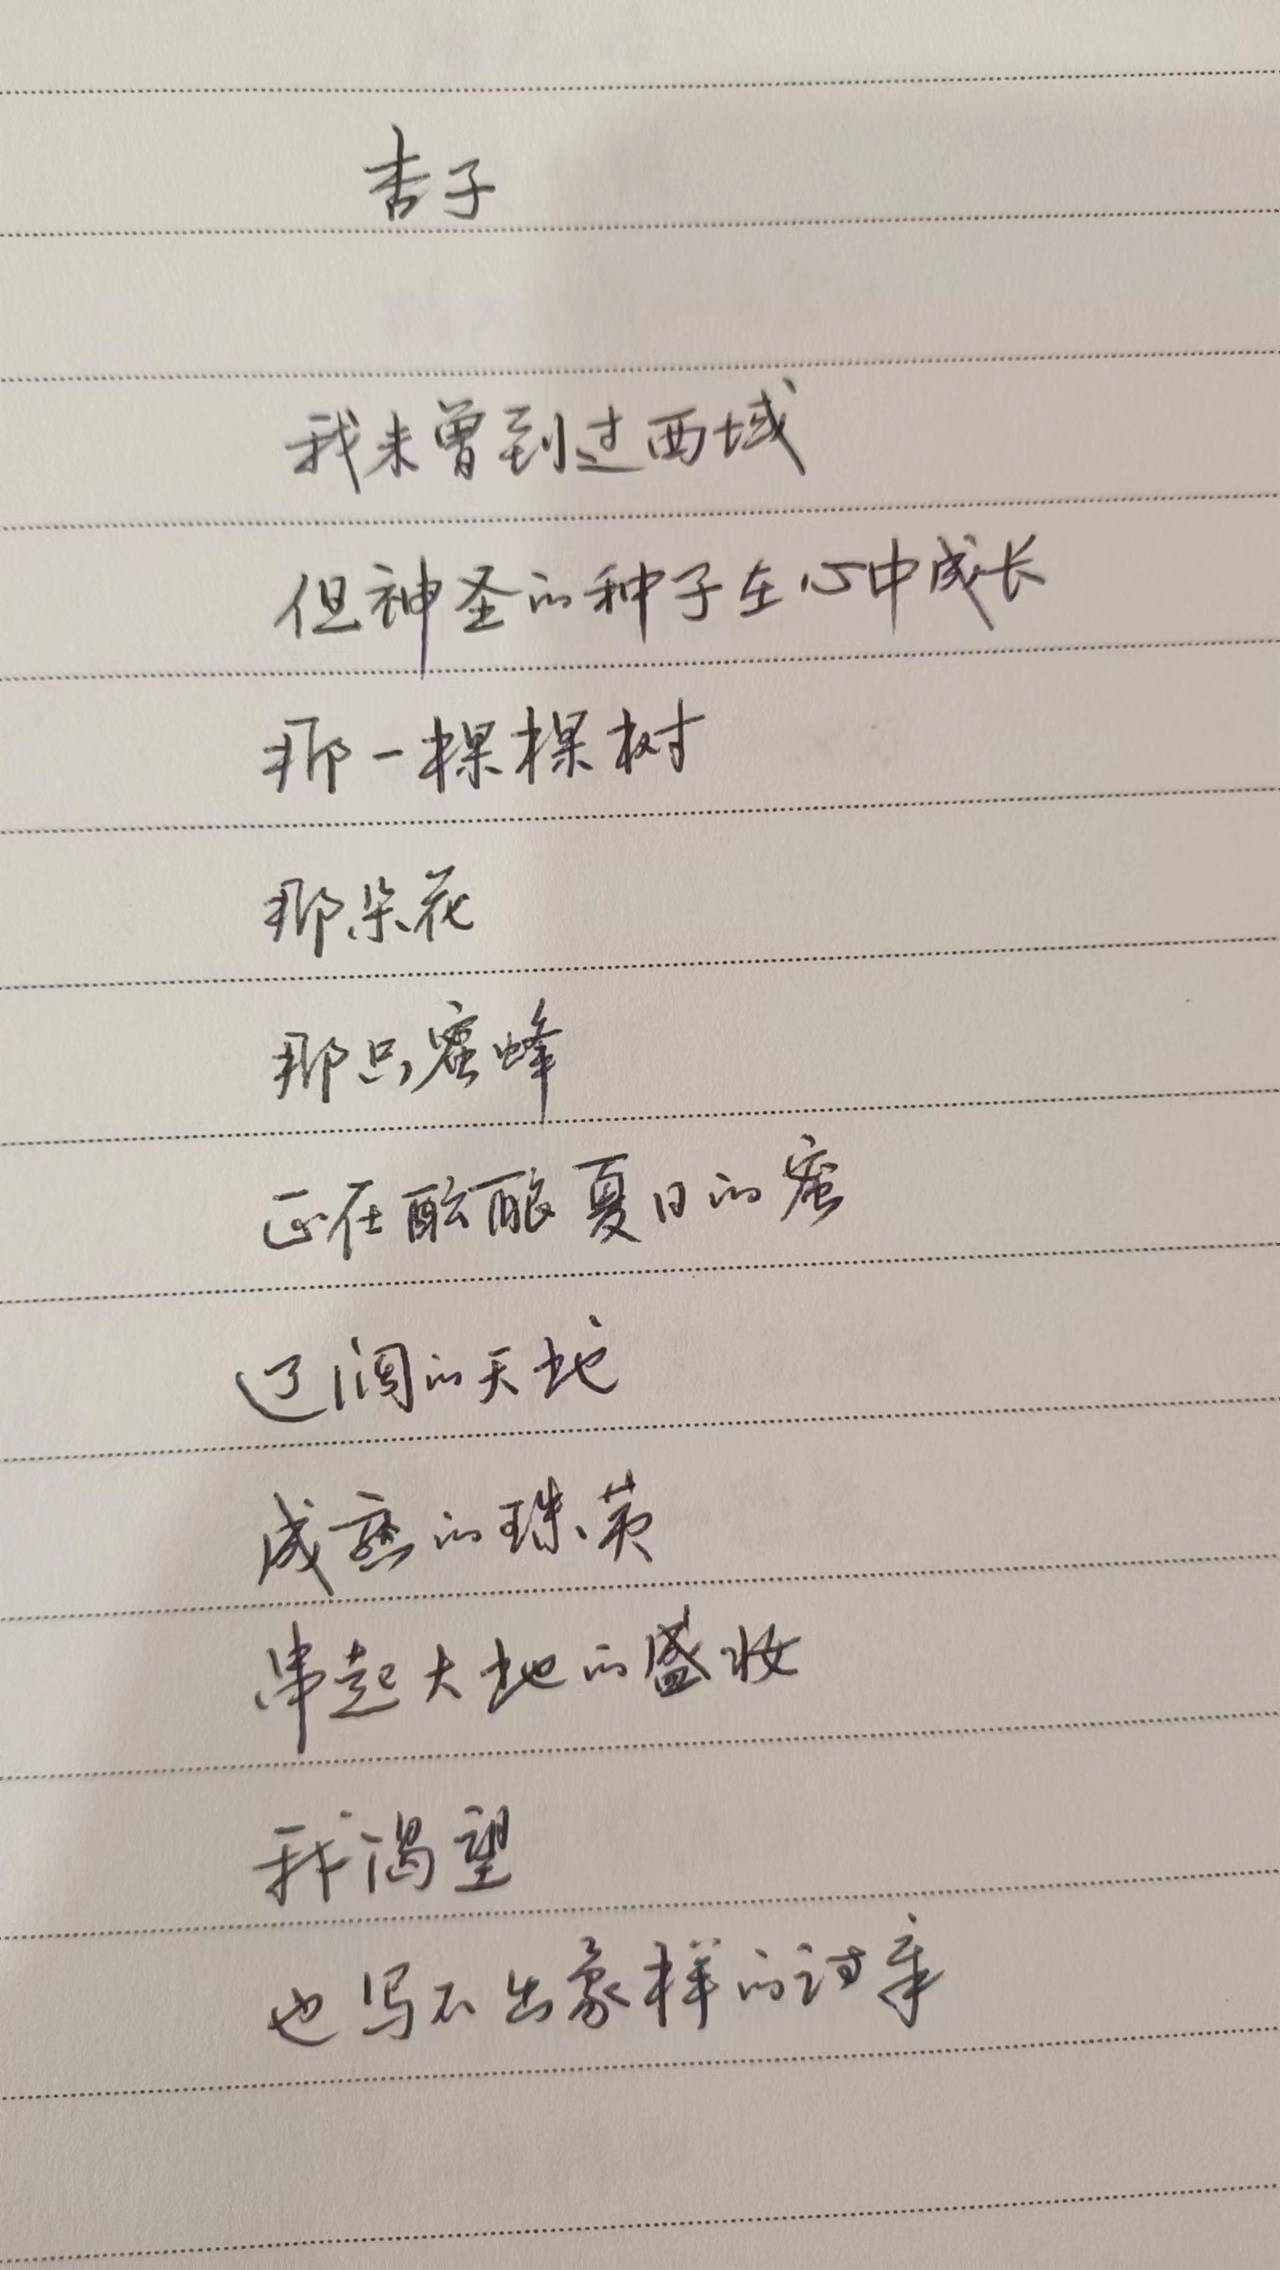 杏子
我未曾到过西域
但神圣的种子在心中成长
那一棵棵树
那朵花
那只蜜蜂
正在酝酿夏日的蜜
辽阔的天地
成熟的珠英
串起大地的盛妆
我渴望
也写不出象样的诗章